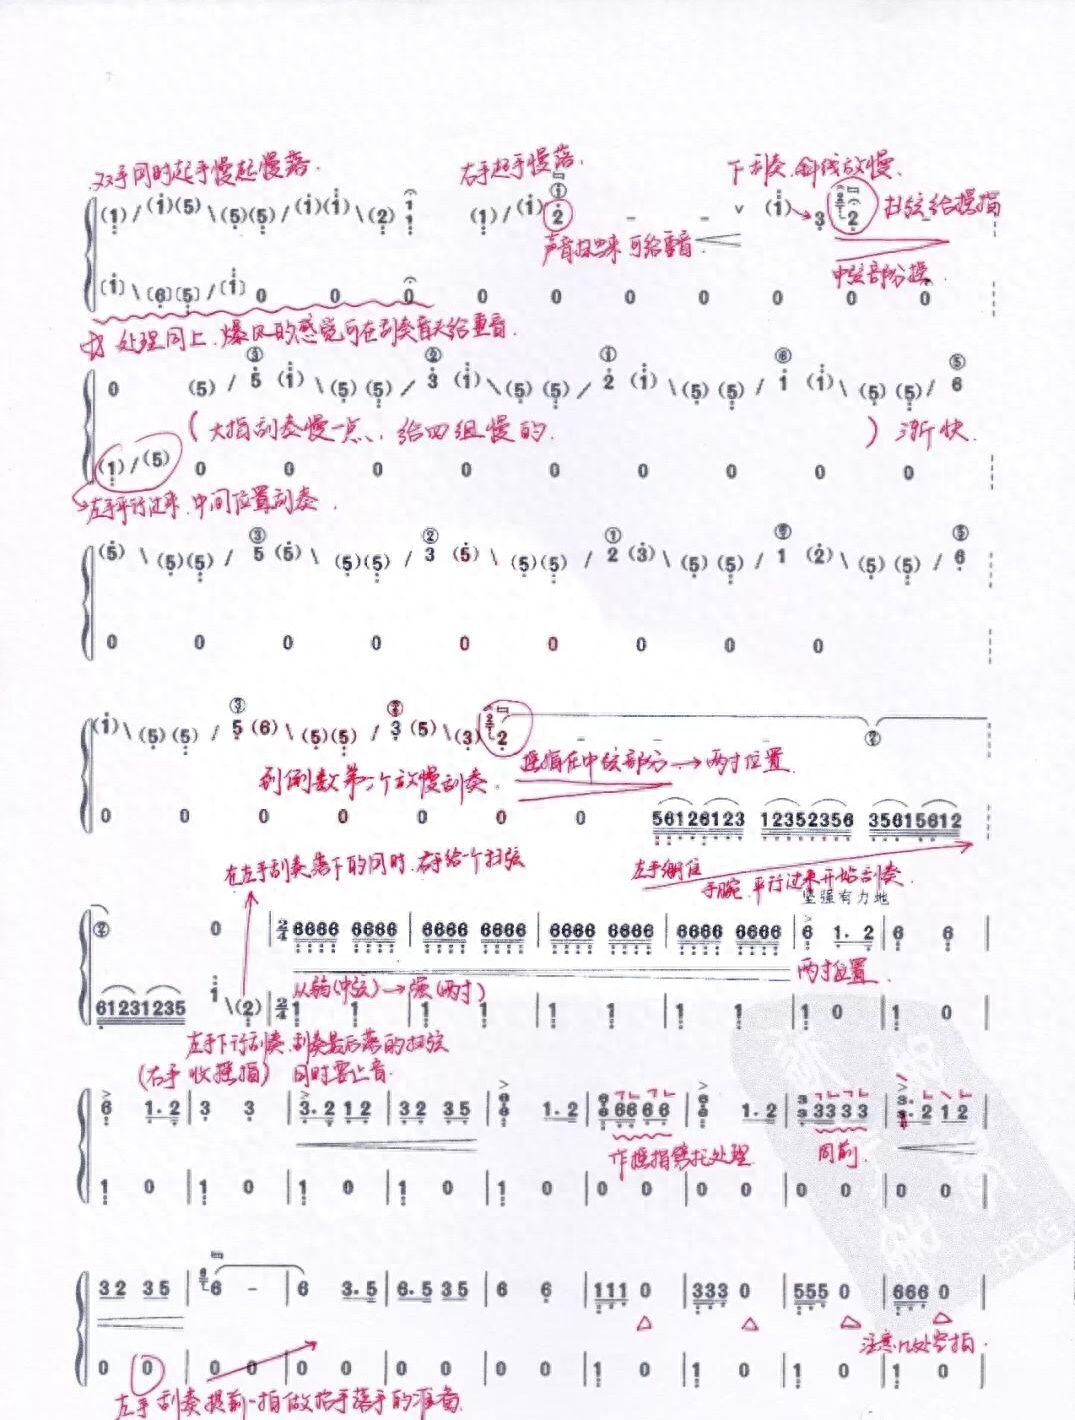 双手同时起手慢起慢落.
右手起手慢落.
下刮奏.斜线放慢.
(1)/(i)(5)\(5)(5)/(i)(i)\(2) 1 (1)/(i) ① 2 - - - ∨ (i) 3 2 -
扫弦给摇指
声音扫出来 可给重音
中弦部分摇.
(i)\(6)(5)/(i) 0 0 0 0 0 0 0 0 0 0
处理同上.爆风的感觉可在刮奏首尖给重音.
③ ② ① ⑥ ⑤
0 (5)/5(i)\(5)(5)/3(i)\(5)(5)/2(i)\(5)(5)/1(i)\(5)(5)/6
(大指刮奏慢一点、给四组慢的. )渐快.
(1)/(5) 0 0 0 0 0 0 0 0 0
左手平行过来.中间位置刮奏.
③ ② ① ⑤
(5)\(5)(5)/5(5)\(5)(5)/3(5)\(5)(5)/2(3)\(5)(5)/1(2)\(5)(5)/6
0 0 0 0 0 0 0 0 0
③ ②
(i)\(5)(5)/5(6)\(5)(5)/3(5)\(3) 2 - - - ②
到倒数第二个放慢刮奏.
摇指在中弦部分→两寸位置.
0 0 0 0 0 0 0 56126123 12352356 35615612
在左手刮奏落下的同时.右手给一个扫弦
左手绷住
手腕.平行过来开始刮奏.
坚强有力地
② 0 | 2/4 6666 6666 | 6666 6666 | 6666 6666 | 6666 6666 | 6 1.2 | 6 6 |
从弱(中弦)→强(两寸)
两寸位置.
61231235 i\(2) | 2/4 1 1 | 1 1 | 1 1 | 1 1 | 1 0 | 1 0 |
左手下行刮奏.刮奏最后落的扫弦
(右手收摇指) 同时要止音.
6 1.2 | 3 3 | 3.2 1 2 | 3 2 3 5 | 6 1.2 | 6 6 6 6 | 6 1.2 | 3 3 3 3 | 3.2 1 2 |
作摇指劈托处理
同前.
1 0 | 1 0 | 1 0 | 1 0 | 1 0 | 0 0 | 0 0 | 0 0 | 0 0 |
3 2 3 5 | 6 - | 6 3.5 | 6.5 3 5 | 6 6 | 111 0 | 333 0 | 555 0 | 666 0 |
注意几处空拍.
0 0 | 0 0 | 0 0 | 0 0 | 0 0 | 1 0 | 1 0 | 1 0 | 1 0 |
左手刮奏提前一拍做抬手落手的准备.
PDG